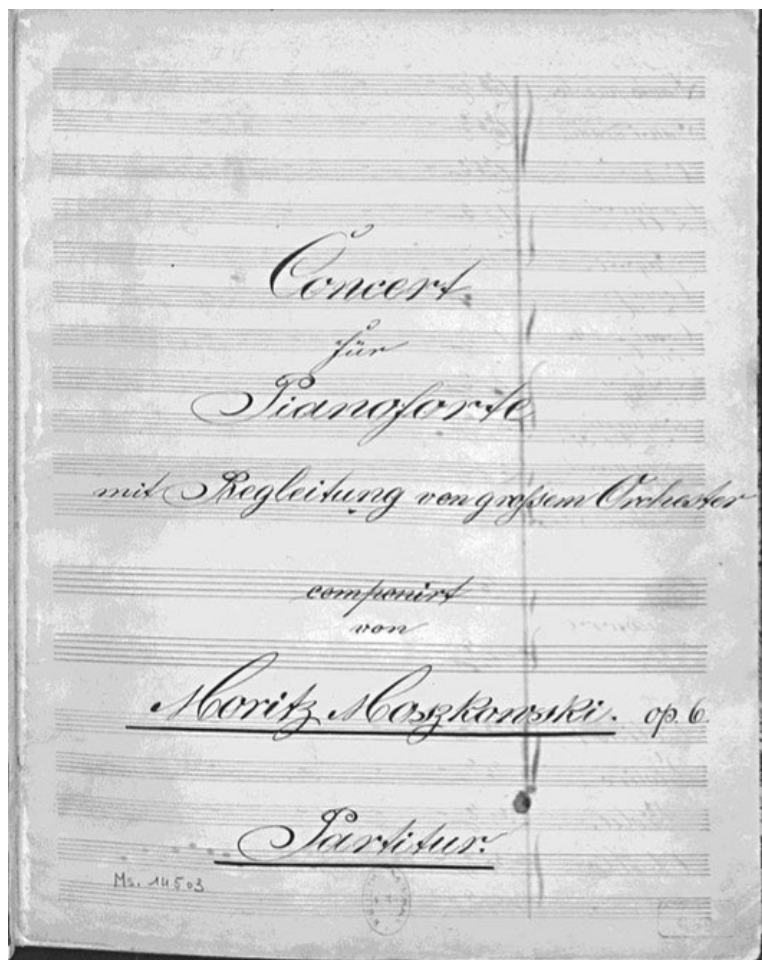 Concert
für
Pianoforte
mit Begleitung von großem Orchester
componirt
von
Moritz Moszkowski. op. 6.
Partitur.
Ms. 14503